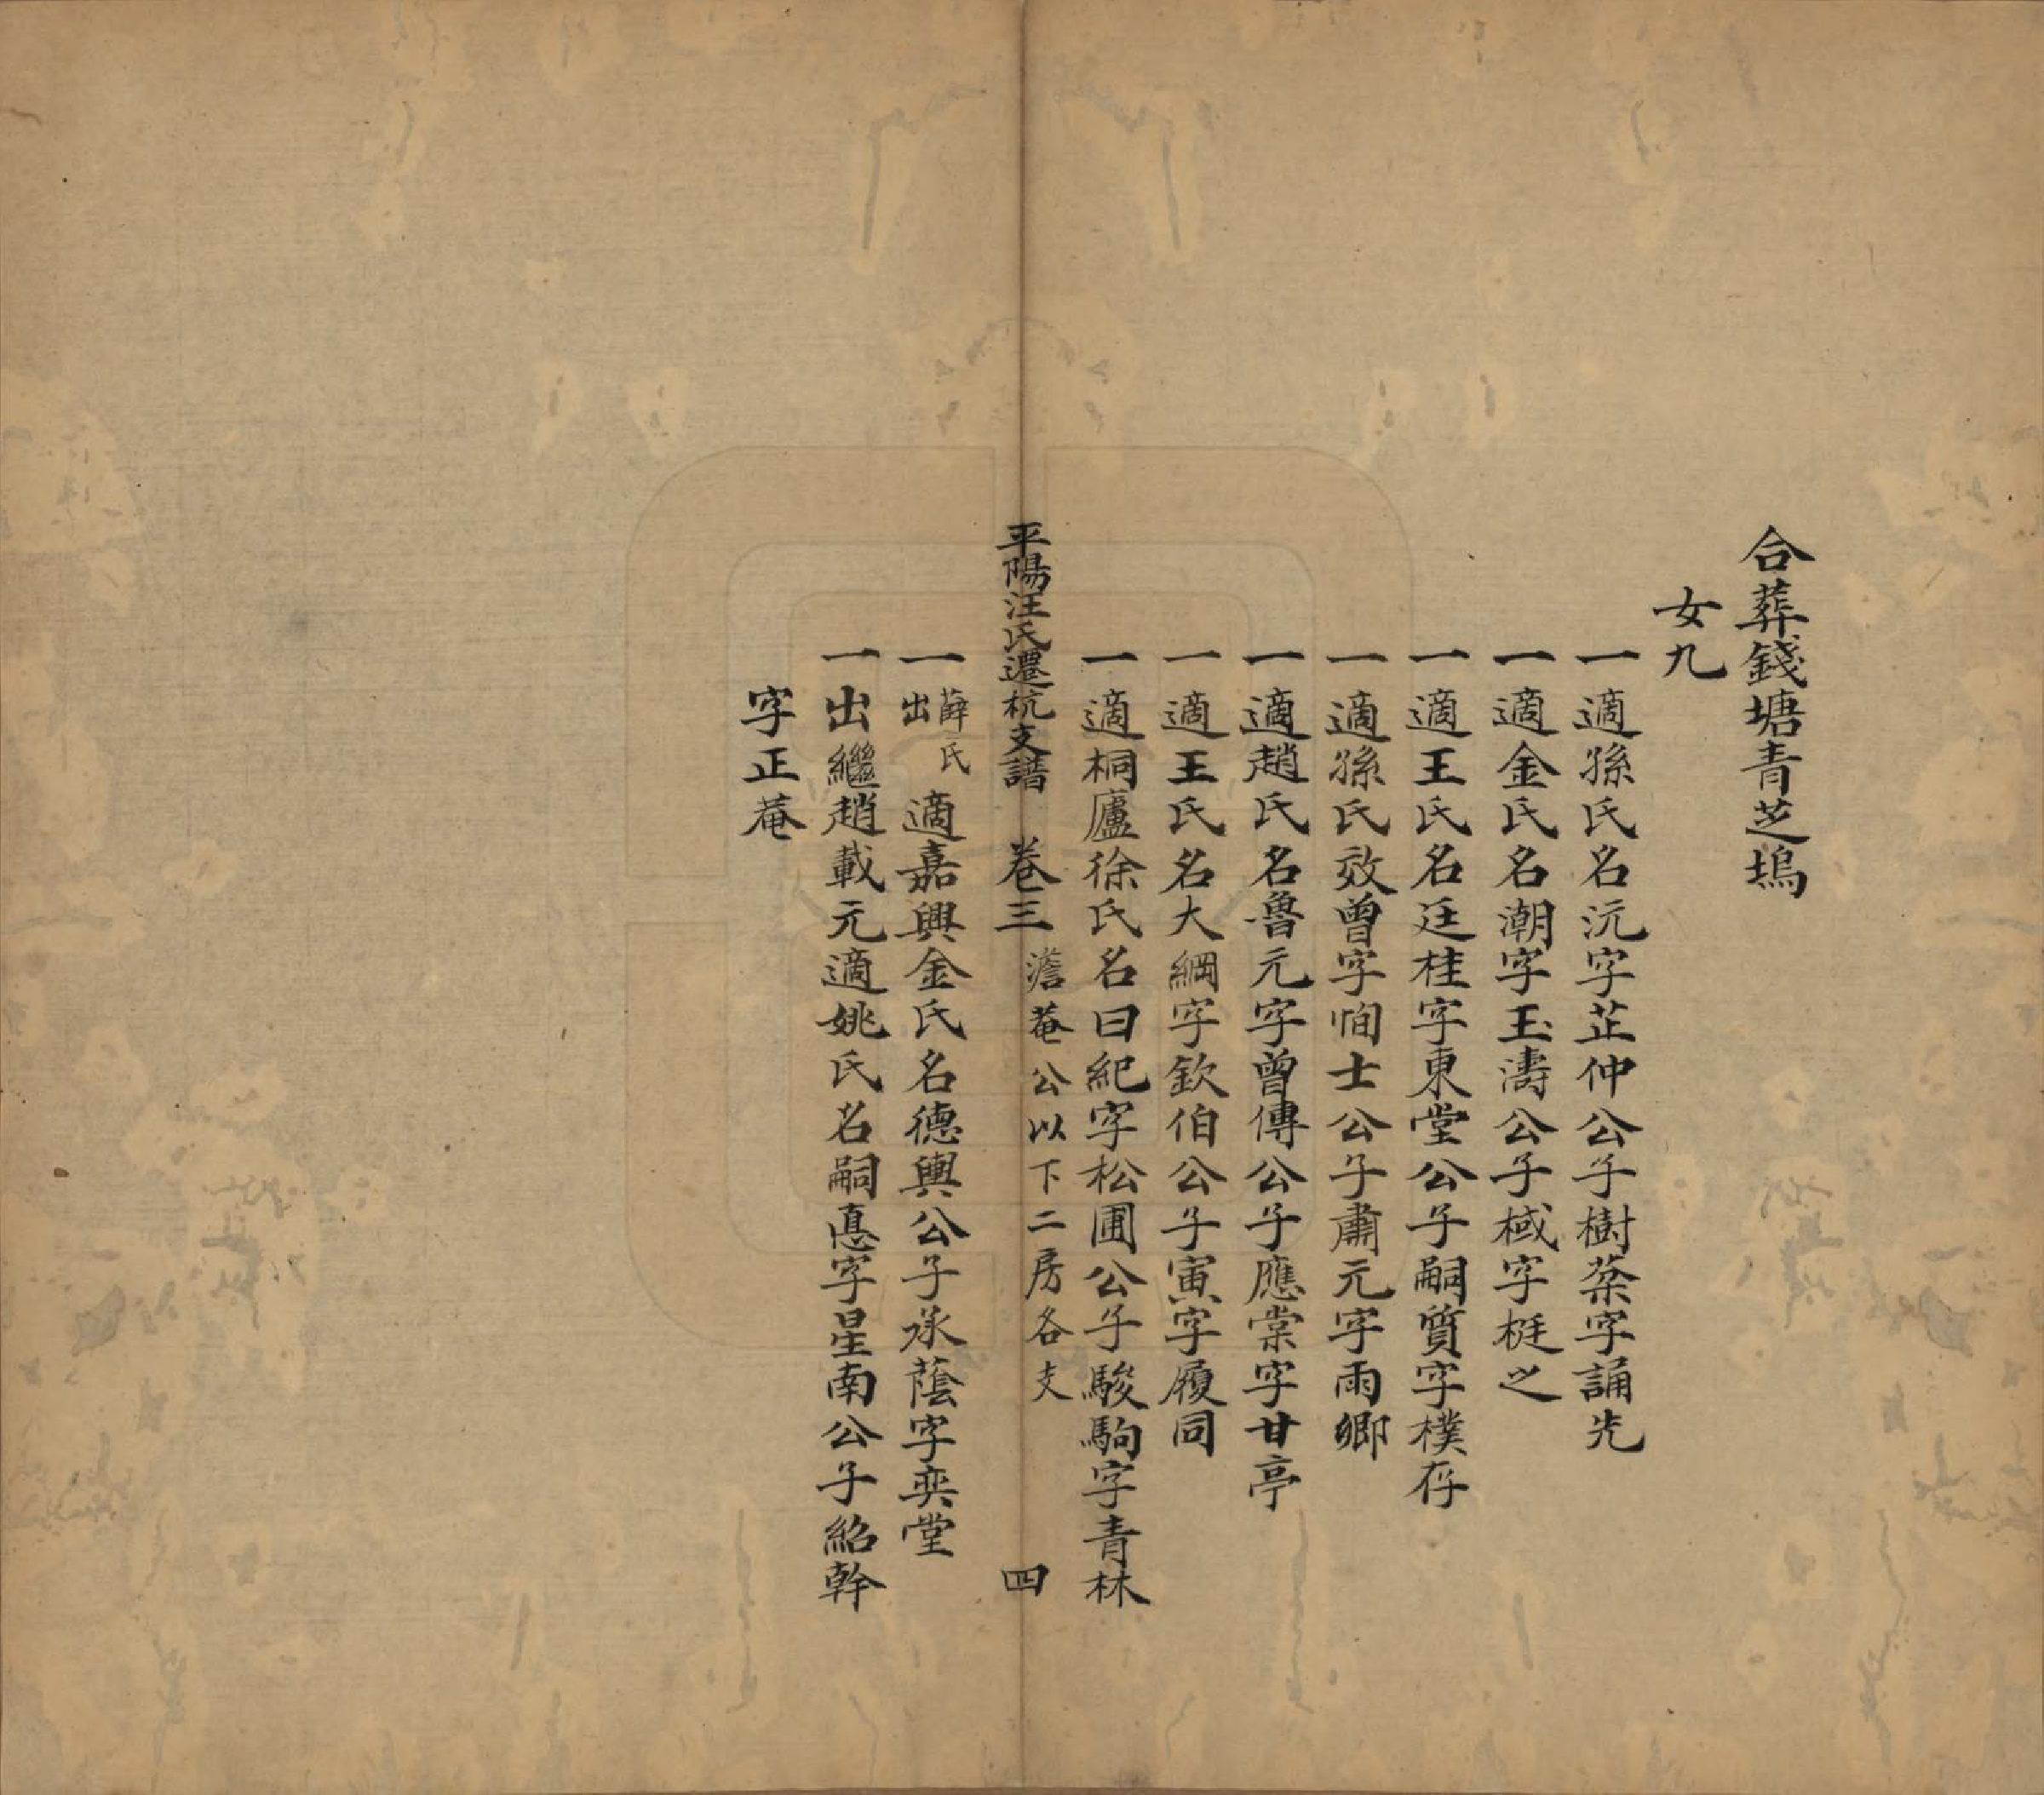 合葬錢塘青芝塢
女九
一適孫氏名沅字芷仲公子樹棻字誦先
一適金氏名潮字玉濤公子棫字梃之
一適王氏名廷桂字東堂公子嗣質字樸存
一適孫氏效曾字恂士公子肅元字雨卿
一適趙氏名魯元字曾傳公子應棠字甘亭
一適王氏名大綱字欽伯公子寅字履同
一適桐廬徐氏名曰紀字松圃公子駿駒字青林
平陽汪氏遷杭支譜 卷三 澹菴公以下二房各支 四
一薛氏出適嘉興金氏名德輿公子承蔭字奕堂
一出繼趙載元適姚氏名嗣悳字星南公子紹幹
字正菴